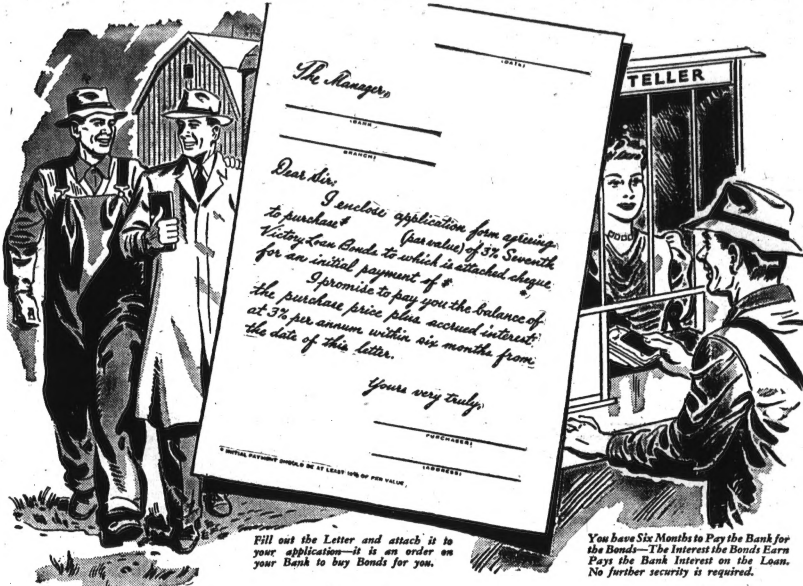 (DATE)
The Manager,
(BANK)
(BRANCH)
Dear Sir,
I enclose application form agreeing
to purchase $ (par value) of 3% Seventh
Victory Loan Bonds to which is attached cheque
for an initial payment of $ *
I promise to pay you the balance of
the purchase price plus accrued interest
at 3% per annum within six months from
the date of this letter.
Yours very truly,
(PURCHASER)
(ADDRESS)
* INITIAL PAYMENT SHOULD BE AT LEAST 10% OF PER VALUE.
TELLER
Fill out the Letter and attach it to
your application—it is an order on
your Bank to buy Bonds for you.
You have Six Months to Pay the Bank for
the Bonds—The Interest the Bonds Earn
Pays the Bank Interest on the Loan.
No further security is required.